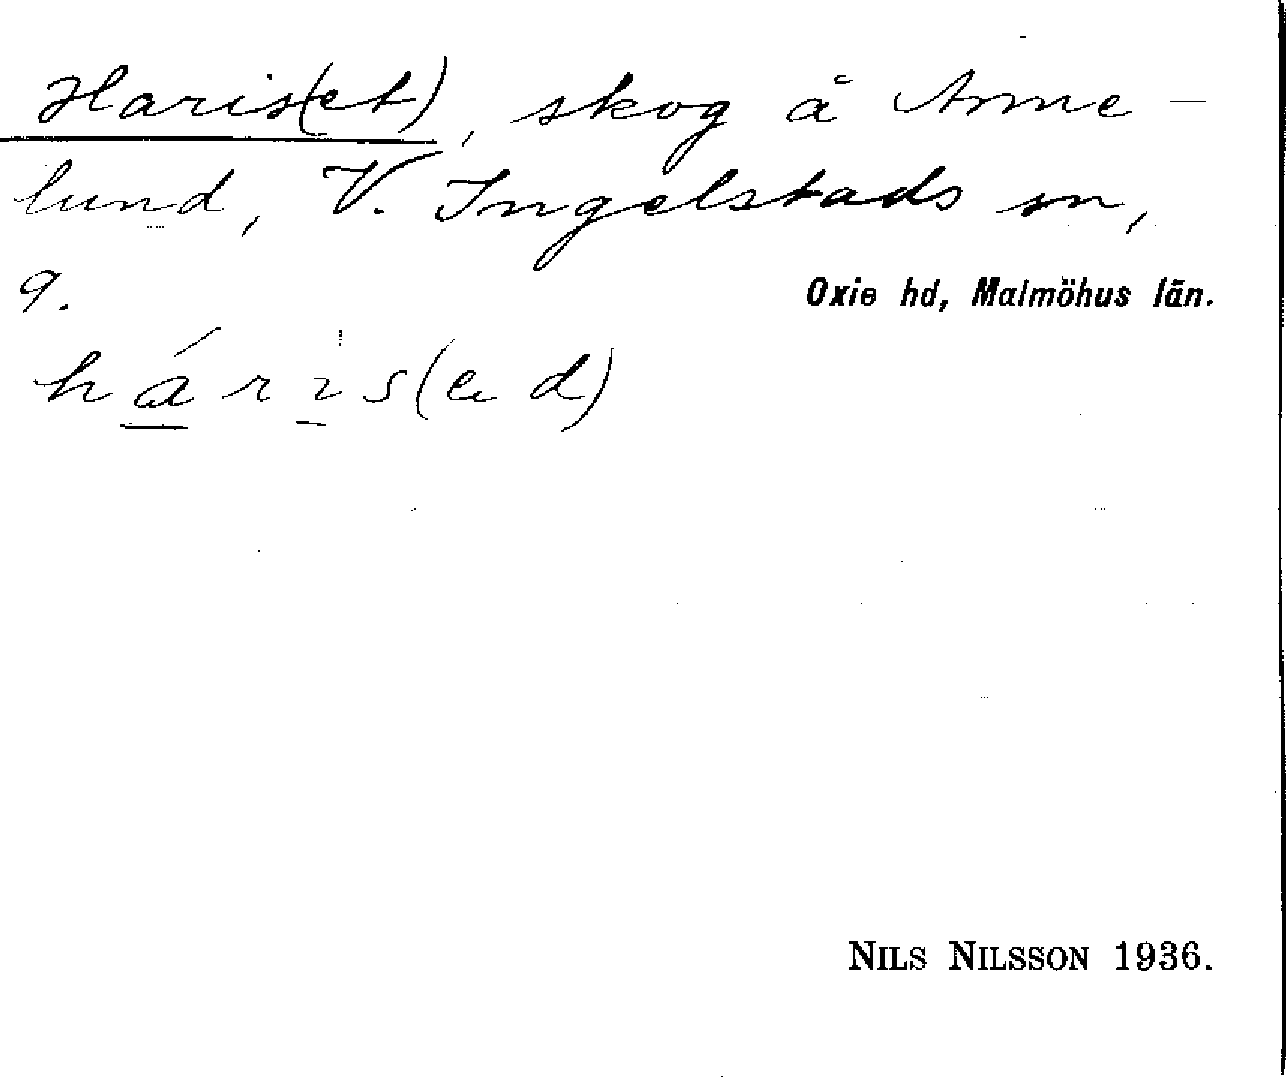 Haris(et), skog å Anne-
lund, V. Ingelstads sn,
9. Oxie hd, Malmöhus län.
háris(ed)
NILS NILSSON 1936.